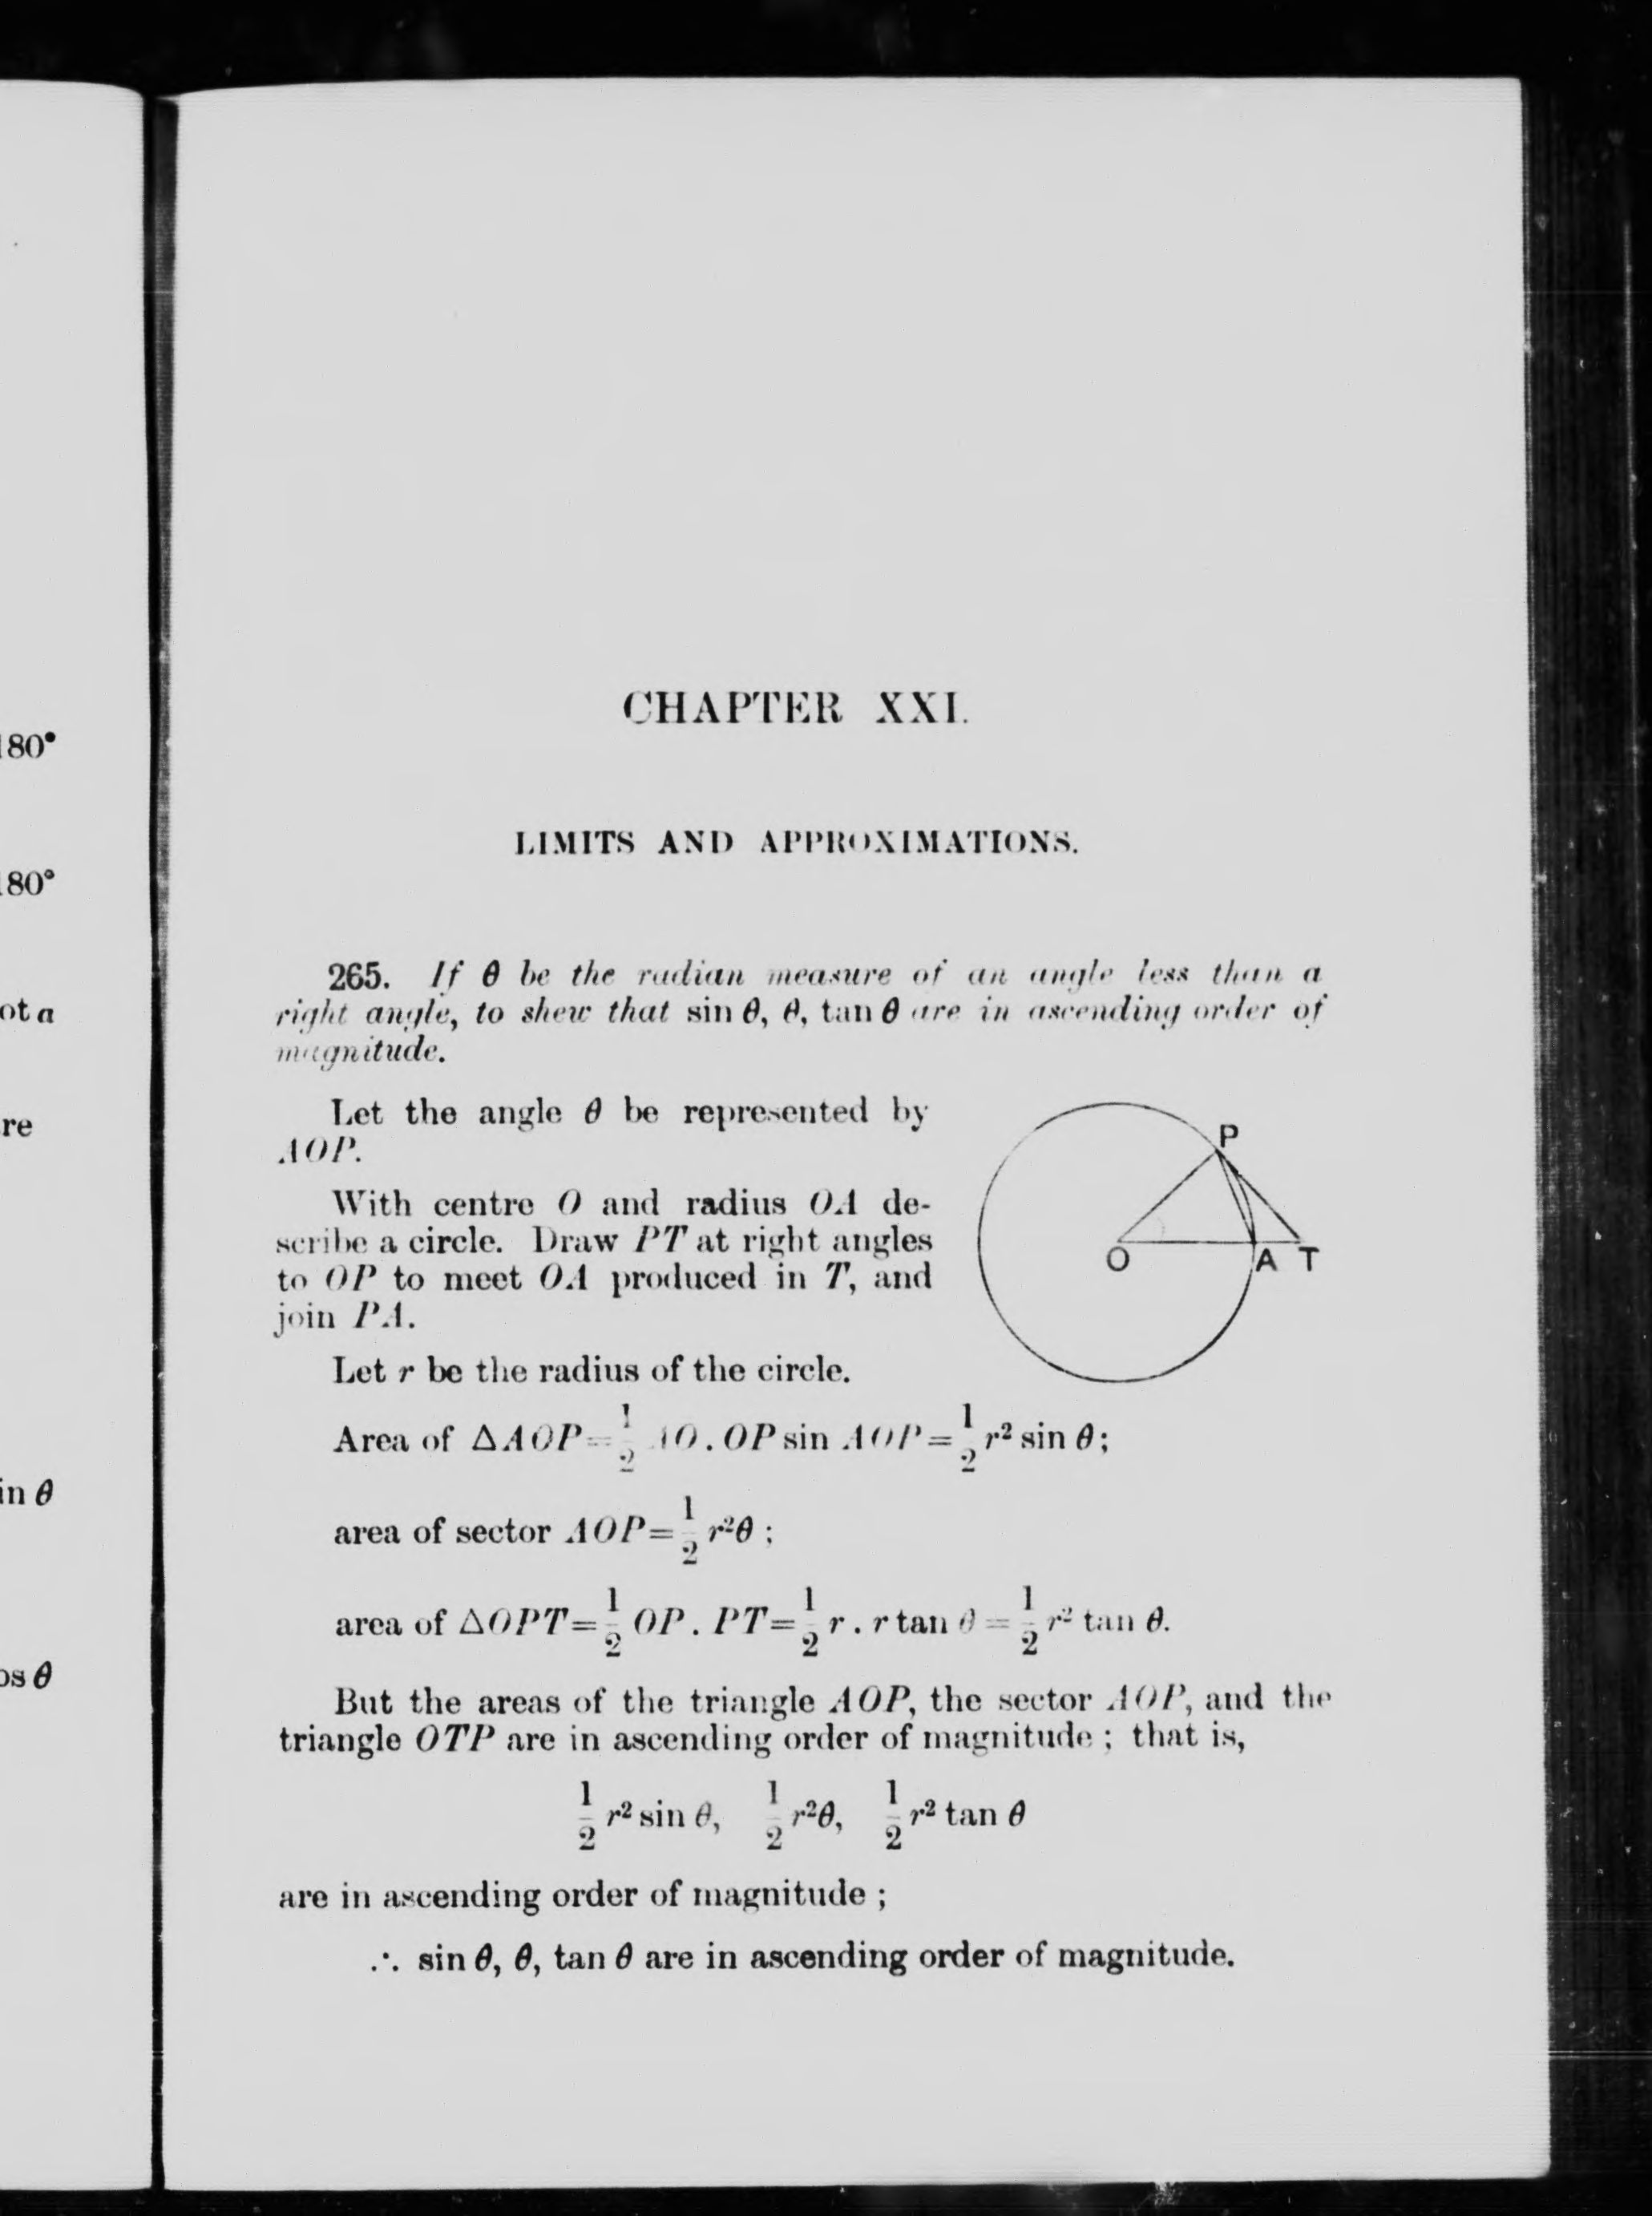 180°
180°
ot a
re
in θ
os θ
CHAPTER XXI.
LIMITS AND APPROXIMATIONS.
265. If θ be the radian measure of an angle less than a
right angle, to shew that sin θ, θ, tan θ are in ascending order of
magnitude.
Let the angle θ be represented by
AOP.
With centre O and radius OA de-
scribe a circle. Draw PT at right angles
to OP to meet OA produced in T, and
join PA.
P
O A T
Let r be the radius of the circle.
Area of △AOP = 1/2 AO . OP sin AOP = 1/2 r² sin θ;
area of sector AOP = 1/2 r²θ ;
area of △OPT = 1/2 OP . PT = 1/2 r . r tan θ = 1/2 r² tan θ.
But the areas of the triangle AOP, the sector AOP, and the
triangle OTP are in ascending order of magnitude ; that is,
1/2 r² sin θ, 1/2 r²θ, 1/2 r² tan θ
are in ascending order of magnitude ;
∴ sin θ, θ, tan θ are in ascending order of magnitude.